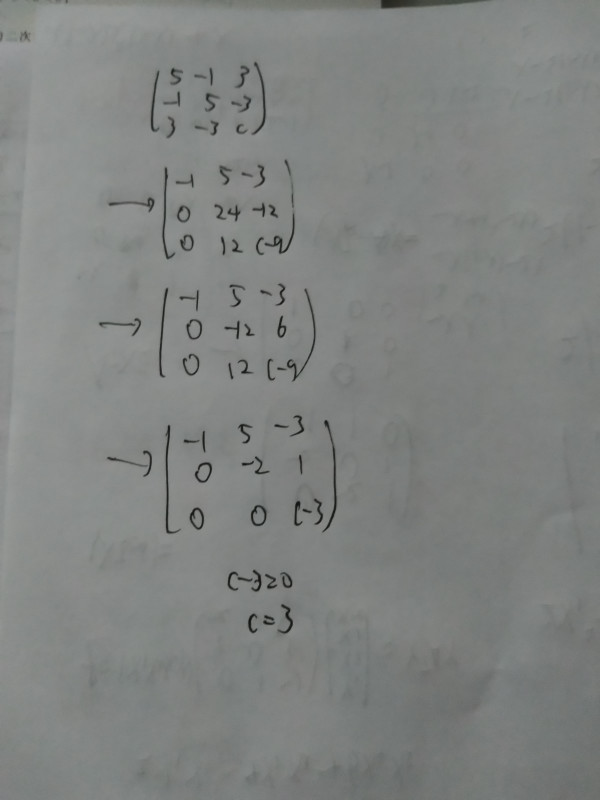 二次
5 -1 3
-1 5 -3
3 -3 c
→ -1 5 -3
0 24 -12
0 12 c-9
→ -1 5 -3
0 -12 6
0 12 c-9
→ -1 5 -3
0 -2 1
0 0 c-3
c-3=0
c=3